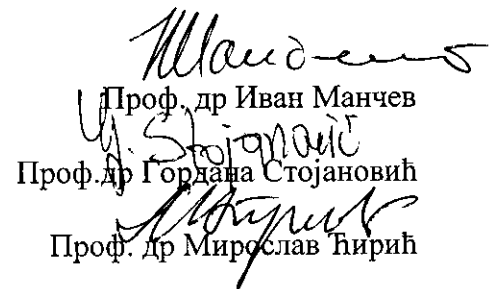 Проф. др Иван Манчев
G. Stojanović
Проф.др Гордана Стојановић
Проф. др Мирослав Ћирић